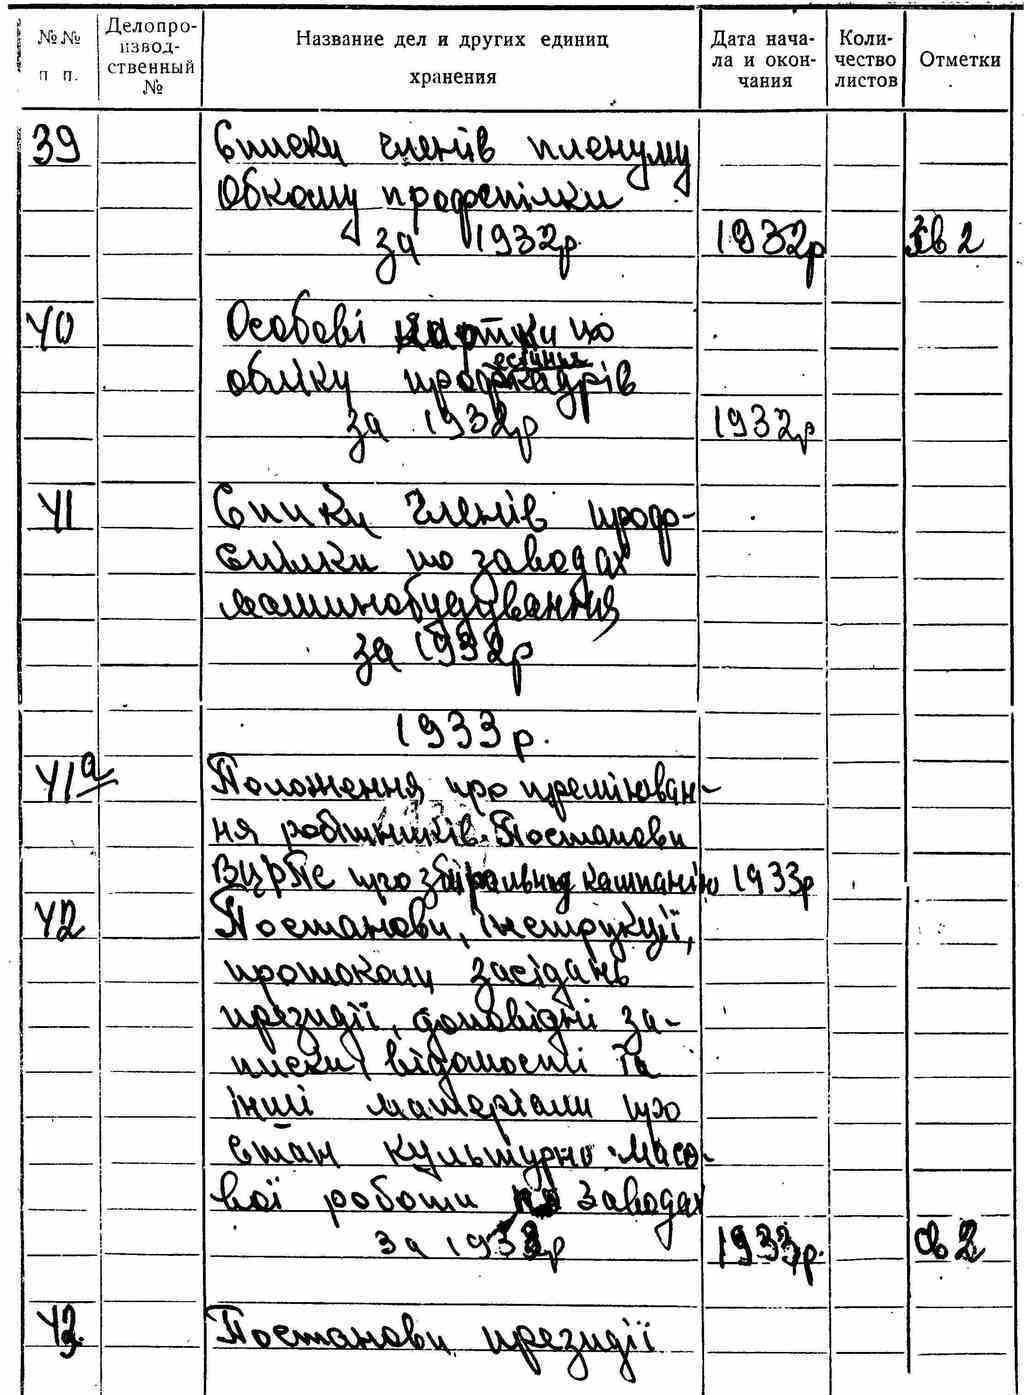 №№ п п.
Делопро-
извод-
ственный
№
Название дел и других единиц
хранения
Дата нача-
ла и окон-
чания
Коли-
чество
листов
Отметки
39 Списки членів пленуму
Обкому профспілки
за 1932р 1932р св 2
40 Особові картки по
обліку профкадрів
за 1932р 1932р
41 Списки членів проф-
спілки по заводах
машинобудування
за 1932р
1933р.
41а Положення про преміюван-
ня робітників. Постанови
ВЦРПС про збиральну кампанію 1933р
42 Постанови, інструкції,
протоколи засідань
президії, доповідні за-
писки, відомості та
інші матеріали про
стан культурно масо-
вої роботи по заводах
за 1933р 1933р. св 2
43. Постанови президії